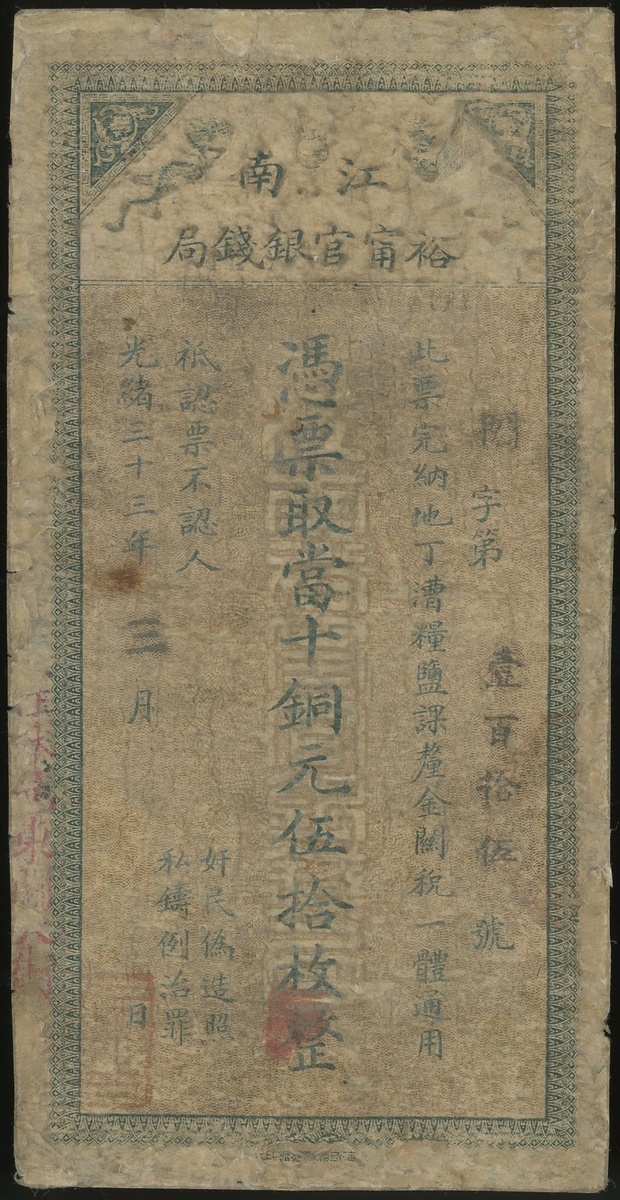 江南
裕甯官銀錢局
字第壹百拾伍號
此票完納地丁漕糧鹽課釐金關稅一體通用
憑票取當十銅元伍拾枚整
祗認票不認人
奸民偽造照
私鑄例治罪
光緒三十三年三月日